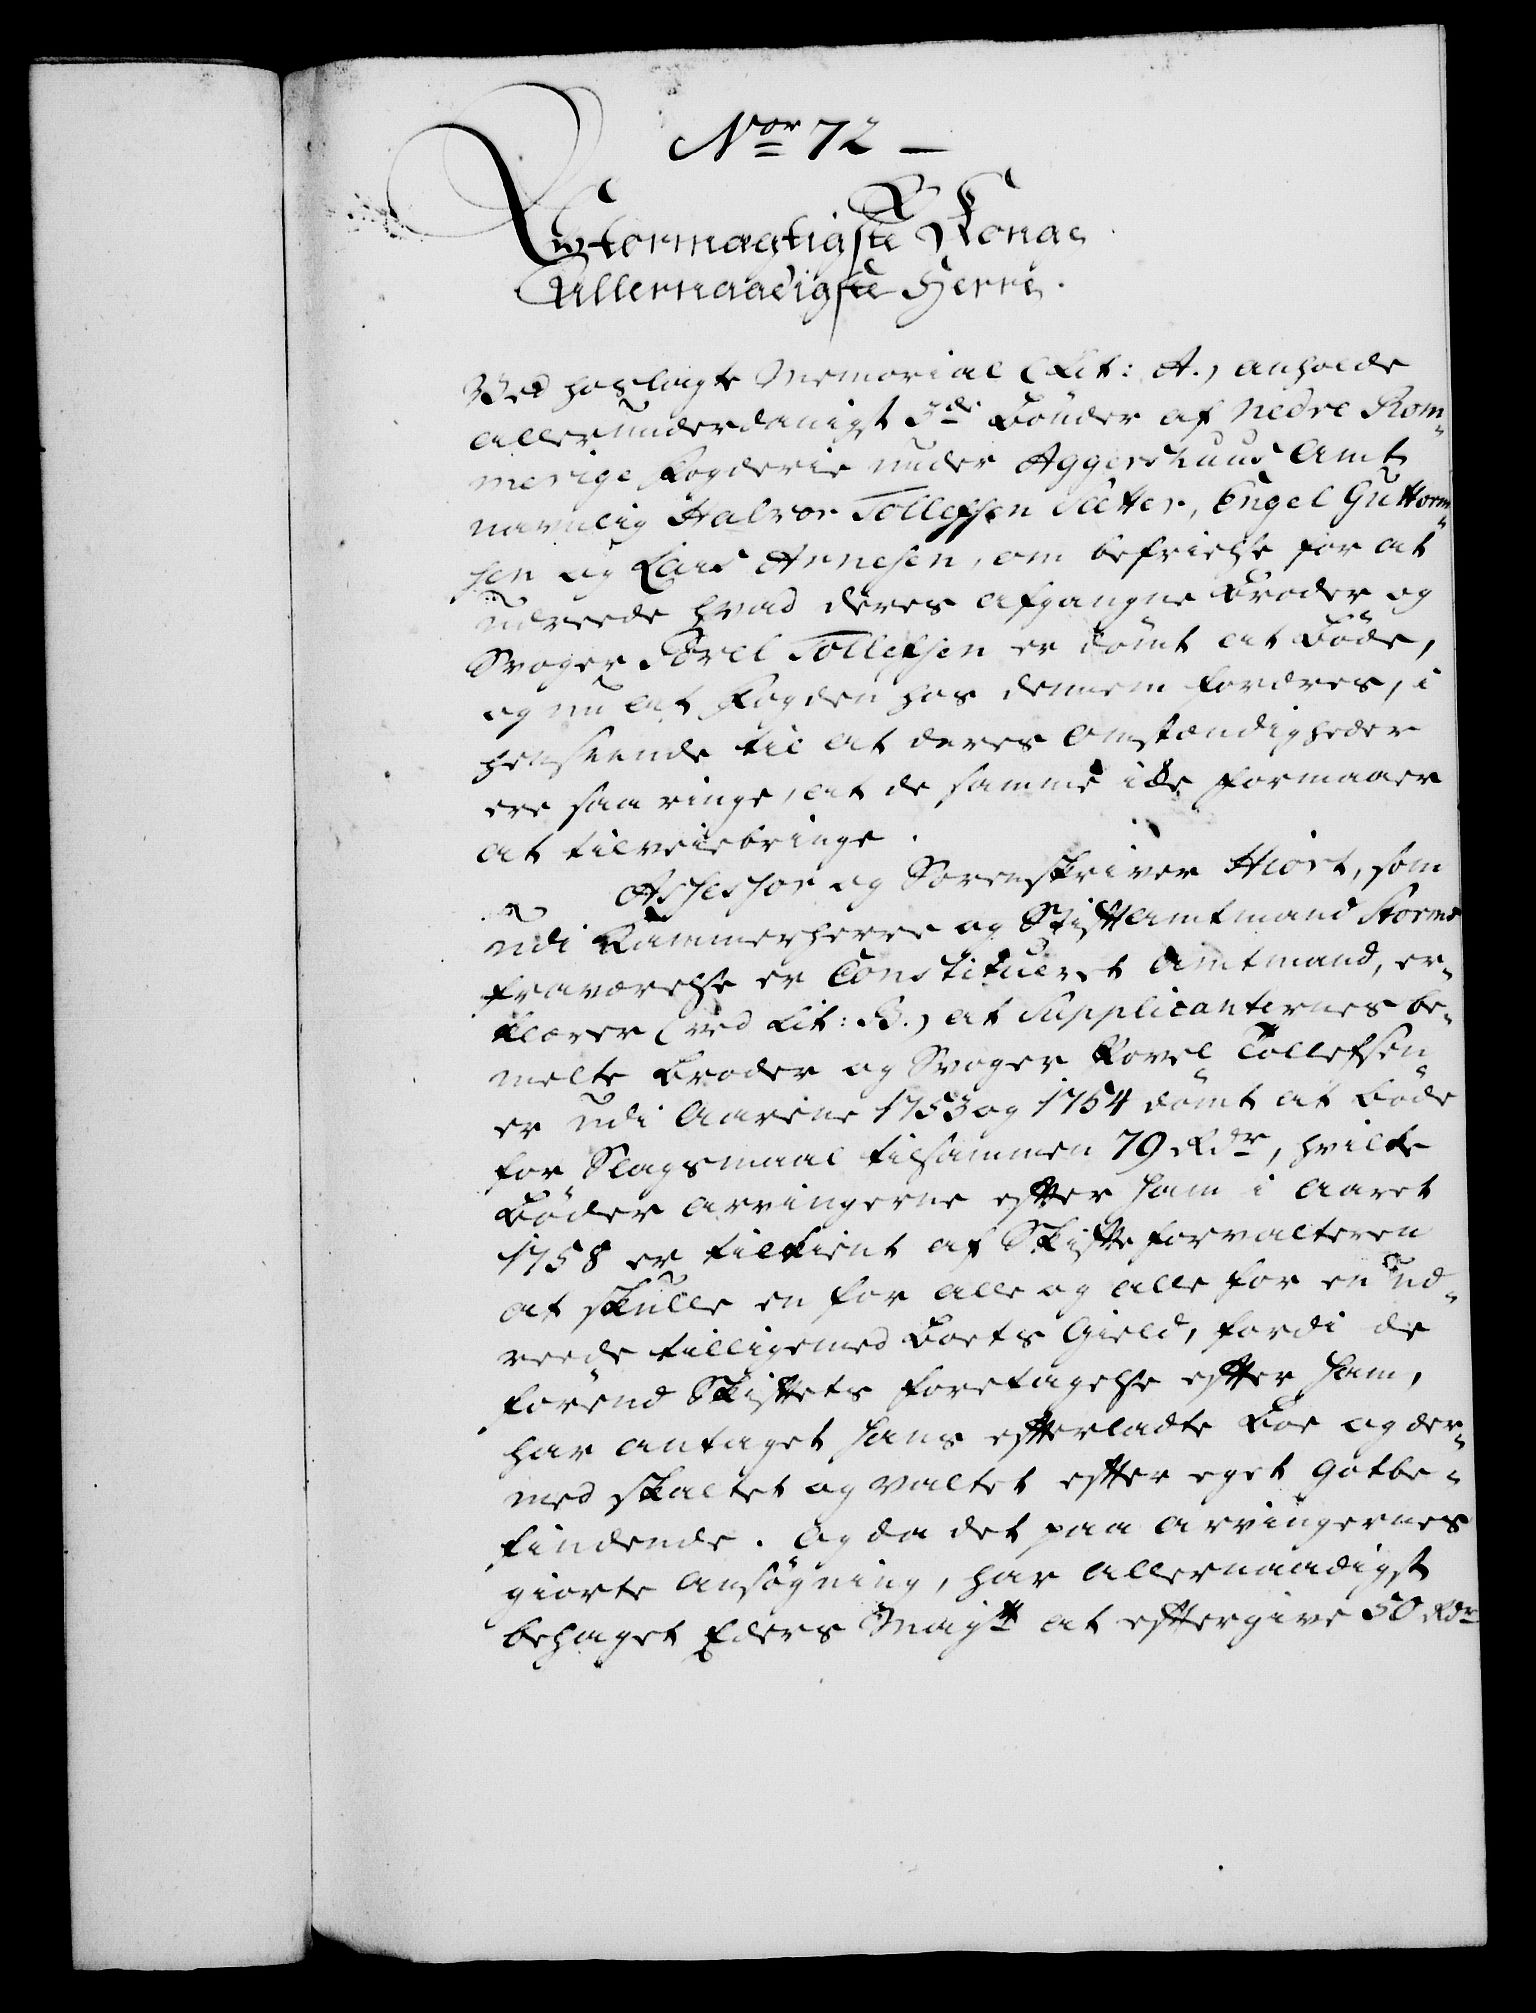 Nor 72 –
Stormægtigste Konge
Allernaadigste Herre.
Ved hoslagte Memorial (Lit: A.) anholde
allerunderdanigst 3de Bönder af Nedre Rom„
merige Fogderie under Aggershuus Amt
navnlig Halvor Tollefsen Sletter, Engel Guttorm„
sen og Lars Arnesen, om befrielse for at
udreede hvad deres afgangne Broder og
Svoger Povel Tollefsen er dömt at Böde,
og nu at Fogden hos dennem fordres, i
henseende til at deres Omstændigheder
ere saa ringe, at de samme icke formaaer
at tilveiebringe.
Assessor og Sorenskriver Hiort, som
udi Kammerherre og Stiftamtmand Storms
fraværelse er Constitueret Amtmand, er„
klærer (ved Lit: B.) at Supplicanternes be„
melte Broder og Svoger Povel Tollefsen
er udi Aarene 1753 og 1754 dömt at Böde
for Slagsmaal tilsammen 79 Rdr, hvilke
Böder Arvingerne efter ham i Aaret
1758 er tilkient af Skifteforvalteren
at skulle en for alle og alle for en ud„
reede tilligemed Boets Gield, fordi de
förend Skiftets foretagelse efter ham,
har antaget hans efterladte Boe og der„
med skaltet og valtet efter eget Gotbe„
findende. Og da det paa Arvingernes
giorte Ansögning, har Allernaadigst
behaget Eders Mayt at eftergive 50 Rdr